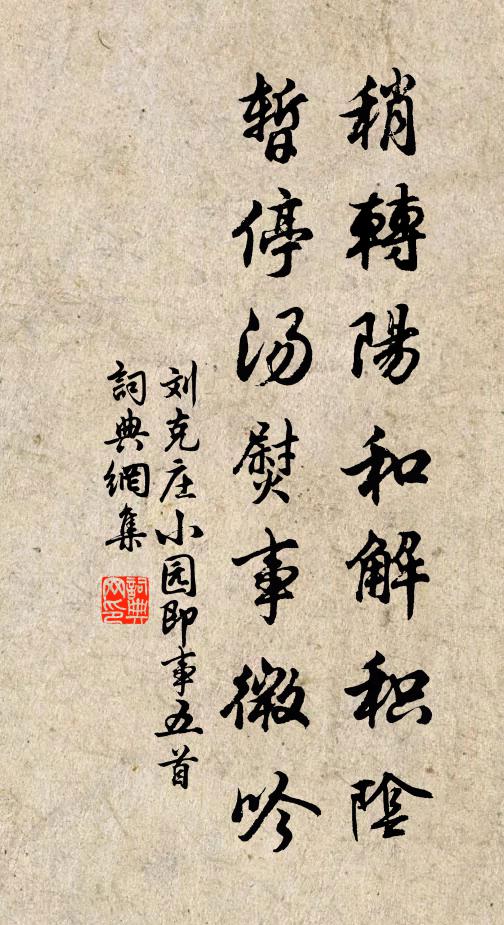 稍轉陽和解积陰
暫停汤熨事微吟
刘克庄小园即事五首
詞典網集
詞典網印